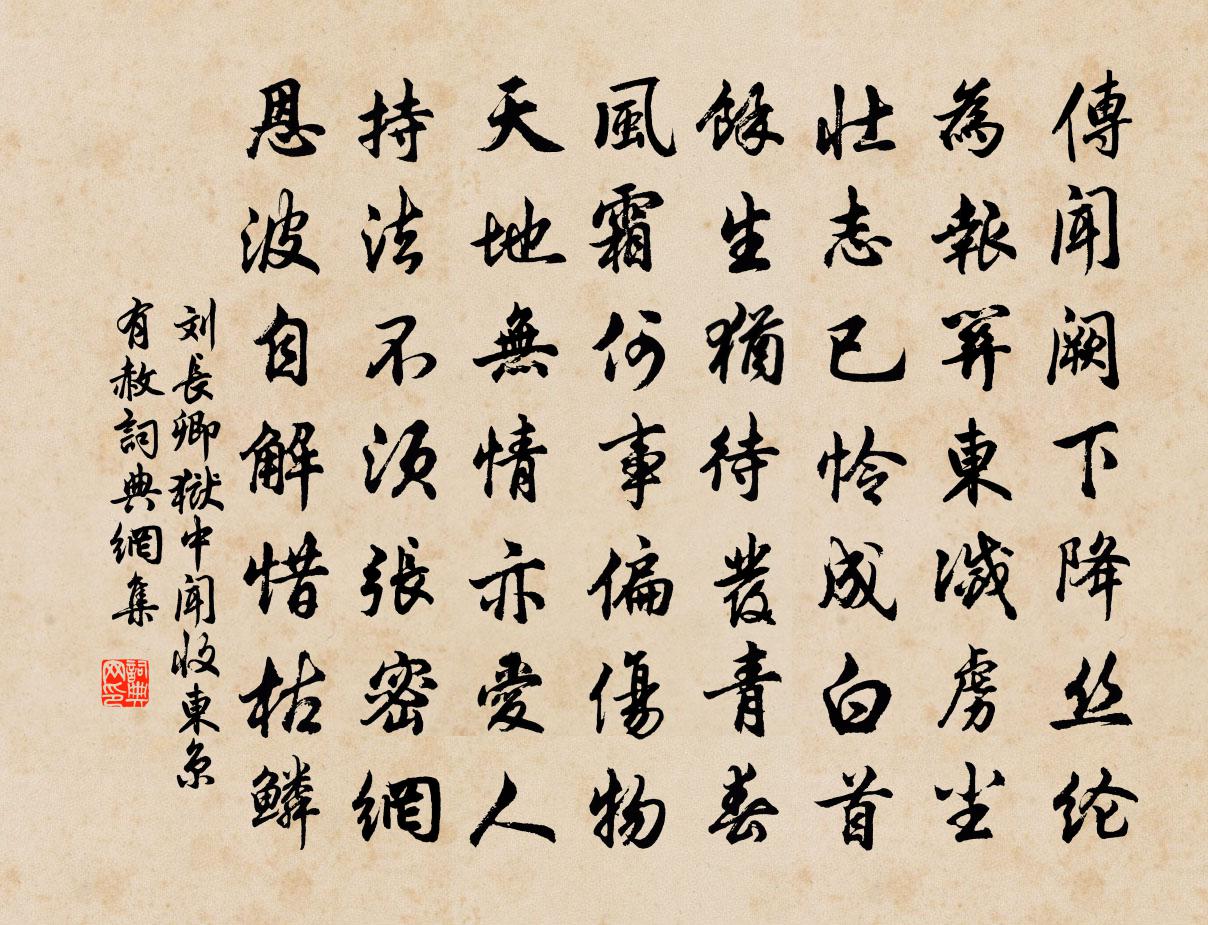 傳聞闕下降丝纶
為報關東滅虜尘
壯志已怜成白首
餘生猶待發青春
風霜何事偏傷物
天地無情亦愛人
持法不須張密網
恩波自解惜枯鱗
刘長卿獄中聞收東京
有赦詞典網集
詞典网印